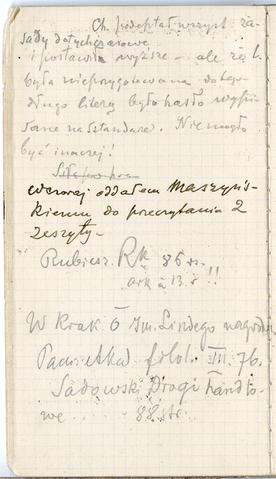 Ch. podeptał wszyst. za-
sady dotychczasowe
i postawił wyższe – ale za t.
była nieprzygotowana do tego
długo literą było hasło wypi-
sane na sztandarze. Nie mogło
być inaczej!
wczoraj oddałem Maszyńs-
kiemu do przeczytania 2
zeszyty.
Rubież. Rk 86 sr.
ark à 13.s !!
W Krak Ó Im. Lindego nagroda
Pamiętka filol. III. 76.
Sadowski Drogi handlo-
we ... 88. str.